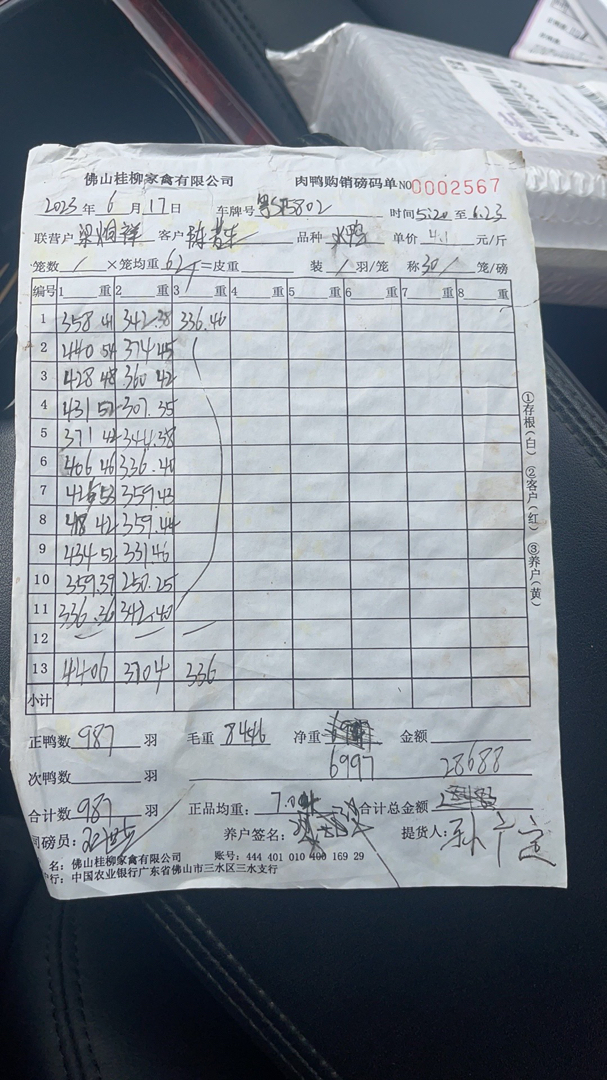 佛山桂柳家禽有限公司 肉鸭购销磅码单 NO 0002567
2023年 6月 17日 车牌号 时间 5:20 至 6:23
联营户 客户 品种 单价 4.1 元/斤
笼数 / ×笼均重 62斤 =皮重 装 / 羽/笼 称 30/ 笼/磅
编号 1 重 2 重 3 重 4 重 5 重 6 重 7 重 8 重
1 358 41 342.38 336.46
2 440 54 374 45
3 428 48 360 42
4 431 52 307.35
5 371 42 344.38
6 406 46 336.40
7 53 359.43
8 418 42 359.44
9 434 52 331.46
10 359.39 250.25
11 336.36 342.40
12
13 4406 3704 336
小计
正鸭数 987 羽 毛重 8446 净重 金额
次鸭数 羽 6997 28688
合计数 987 羽 正品均重: 合计总金额
司磅员: 养户签名: 提货人:
名: 佛山桂柳家禽有限公司 账号: 444 401 010 400 169 29
行: 中国农业银行广东省佛山市三水区三水支行
①存根(白) ②客户(红) ③养户(黄)